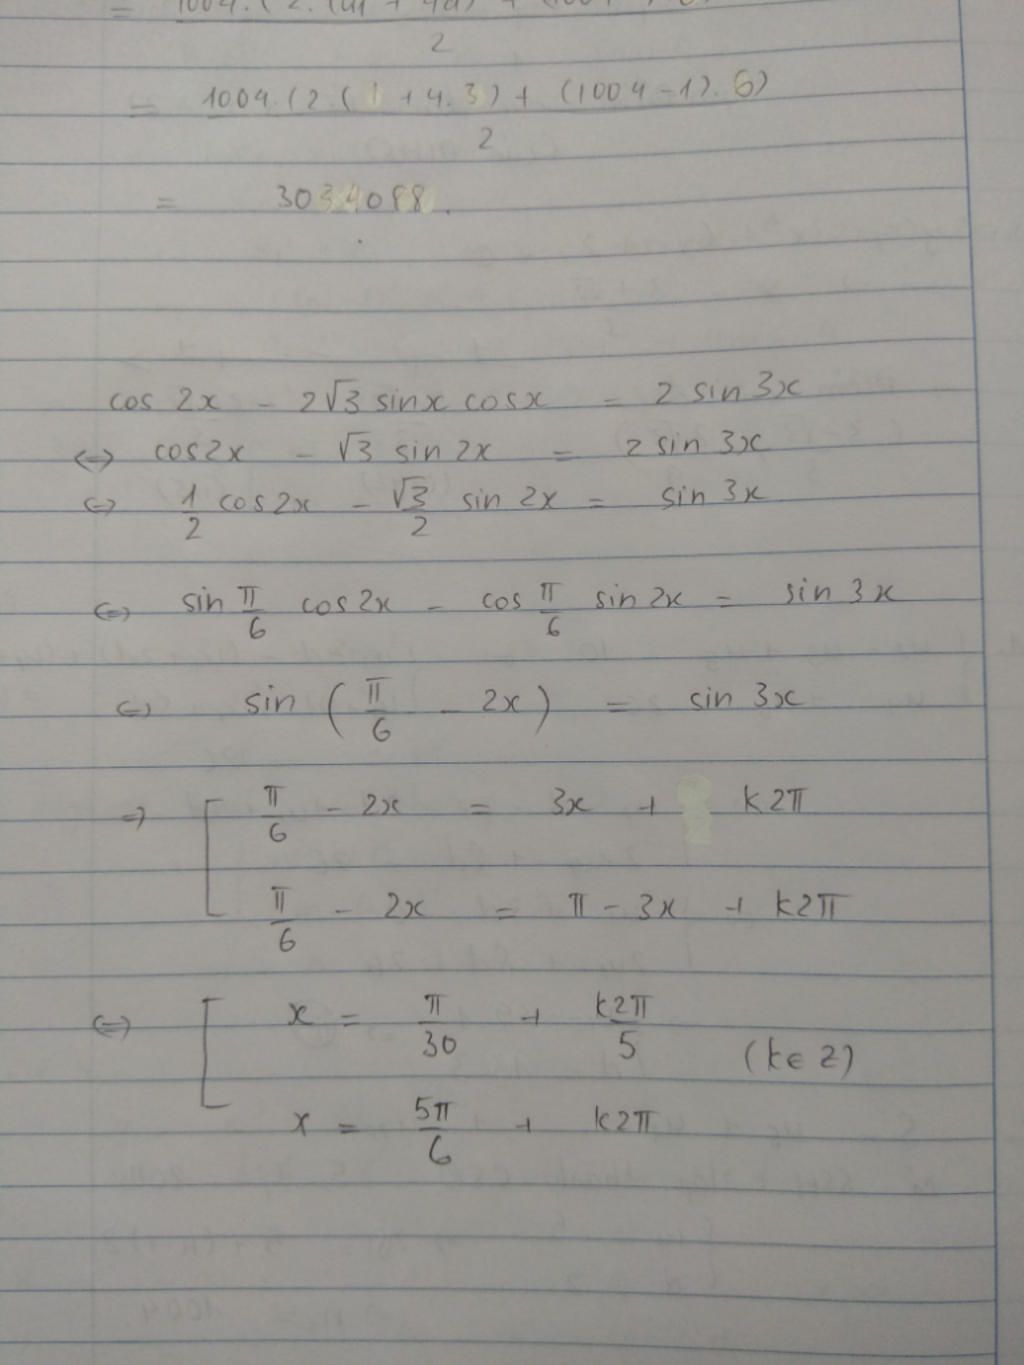 = 1004.(2.(u1 + 4d) + (1004
2
= 1004.(2.(1 + 4.3) + (1004 - 1).6)
2
= 3034088.
cos 2x - 2√3 sinx cosx = 2 sin 3x
⇔ cos2x - √3 sin 2x = 2 sin 3x
⇔ 1/2 cos2x - √3/2 sin 2x = sin 3x
⇔ sin π/6 cos2x - cos π/6 sin 2x = sin 3x
⇔ sin (π/6 - 2x) = sin 3x
⇒ [ π/6 - 2x = 3x + k2π
π/6 - 2x = π - 3x + k2π
⇔ [ x = π/30 + k2π/5 (k∈Z)
x = 5π/6 + k2π